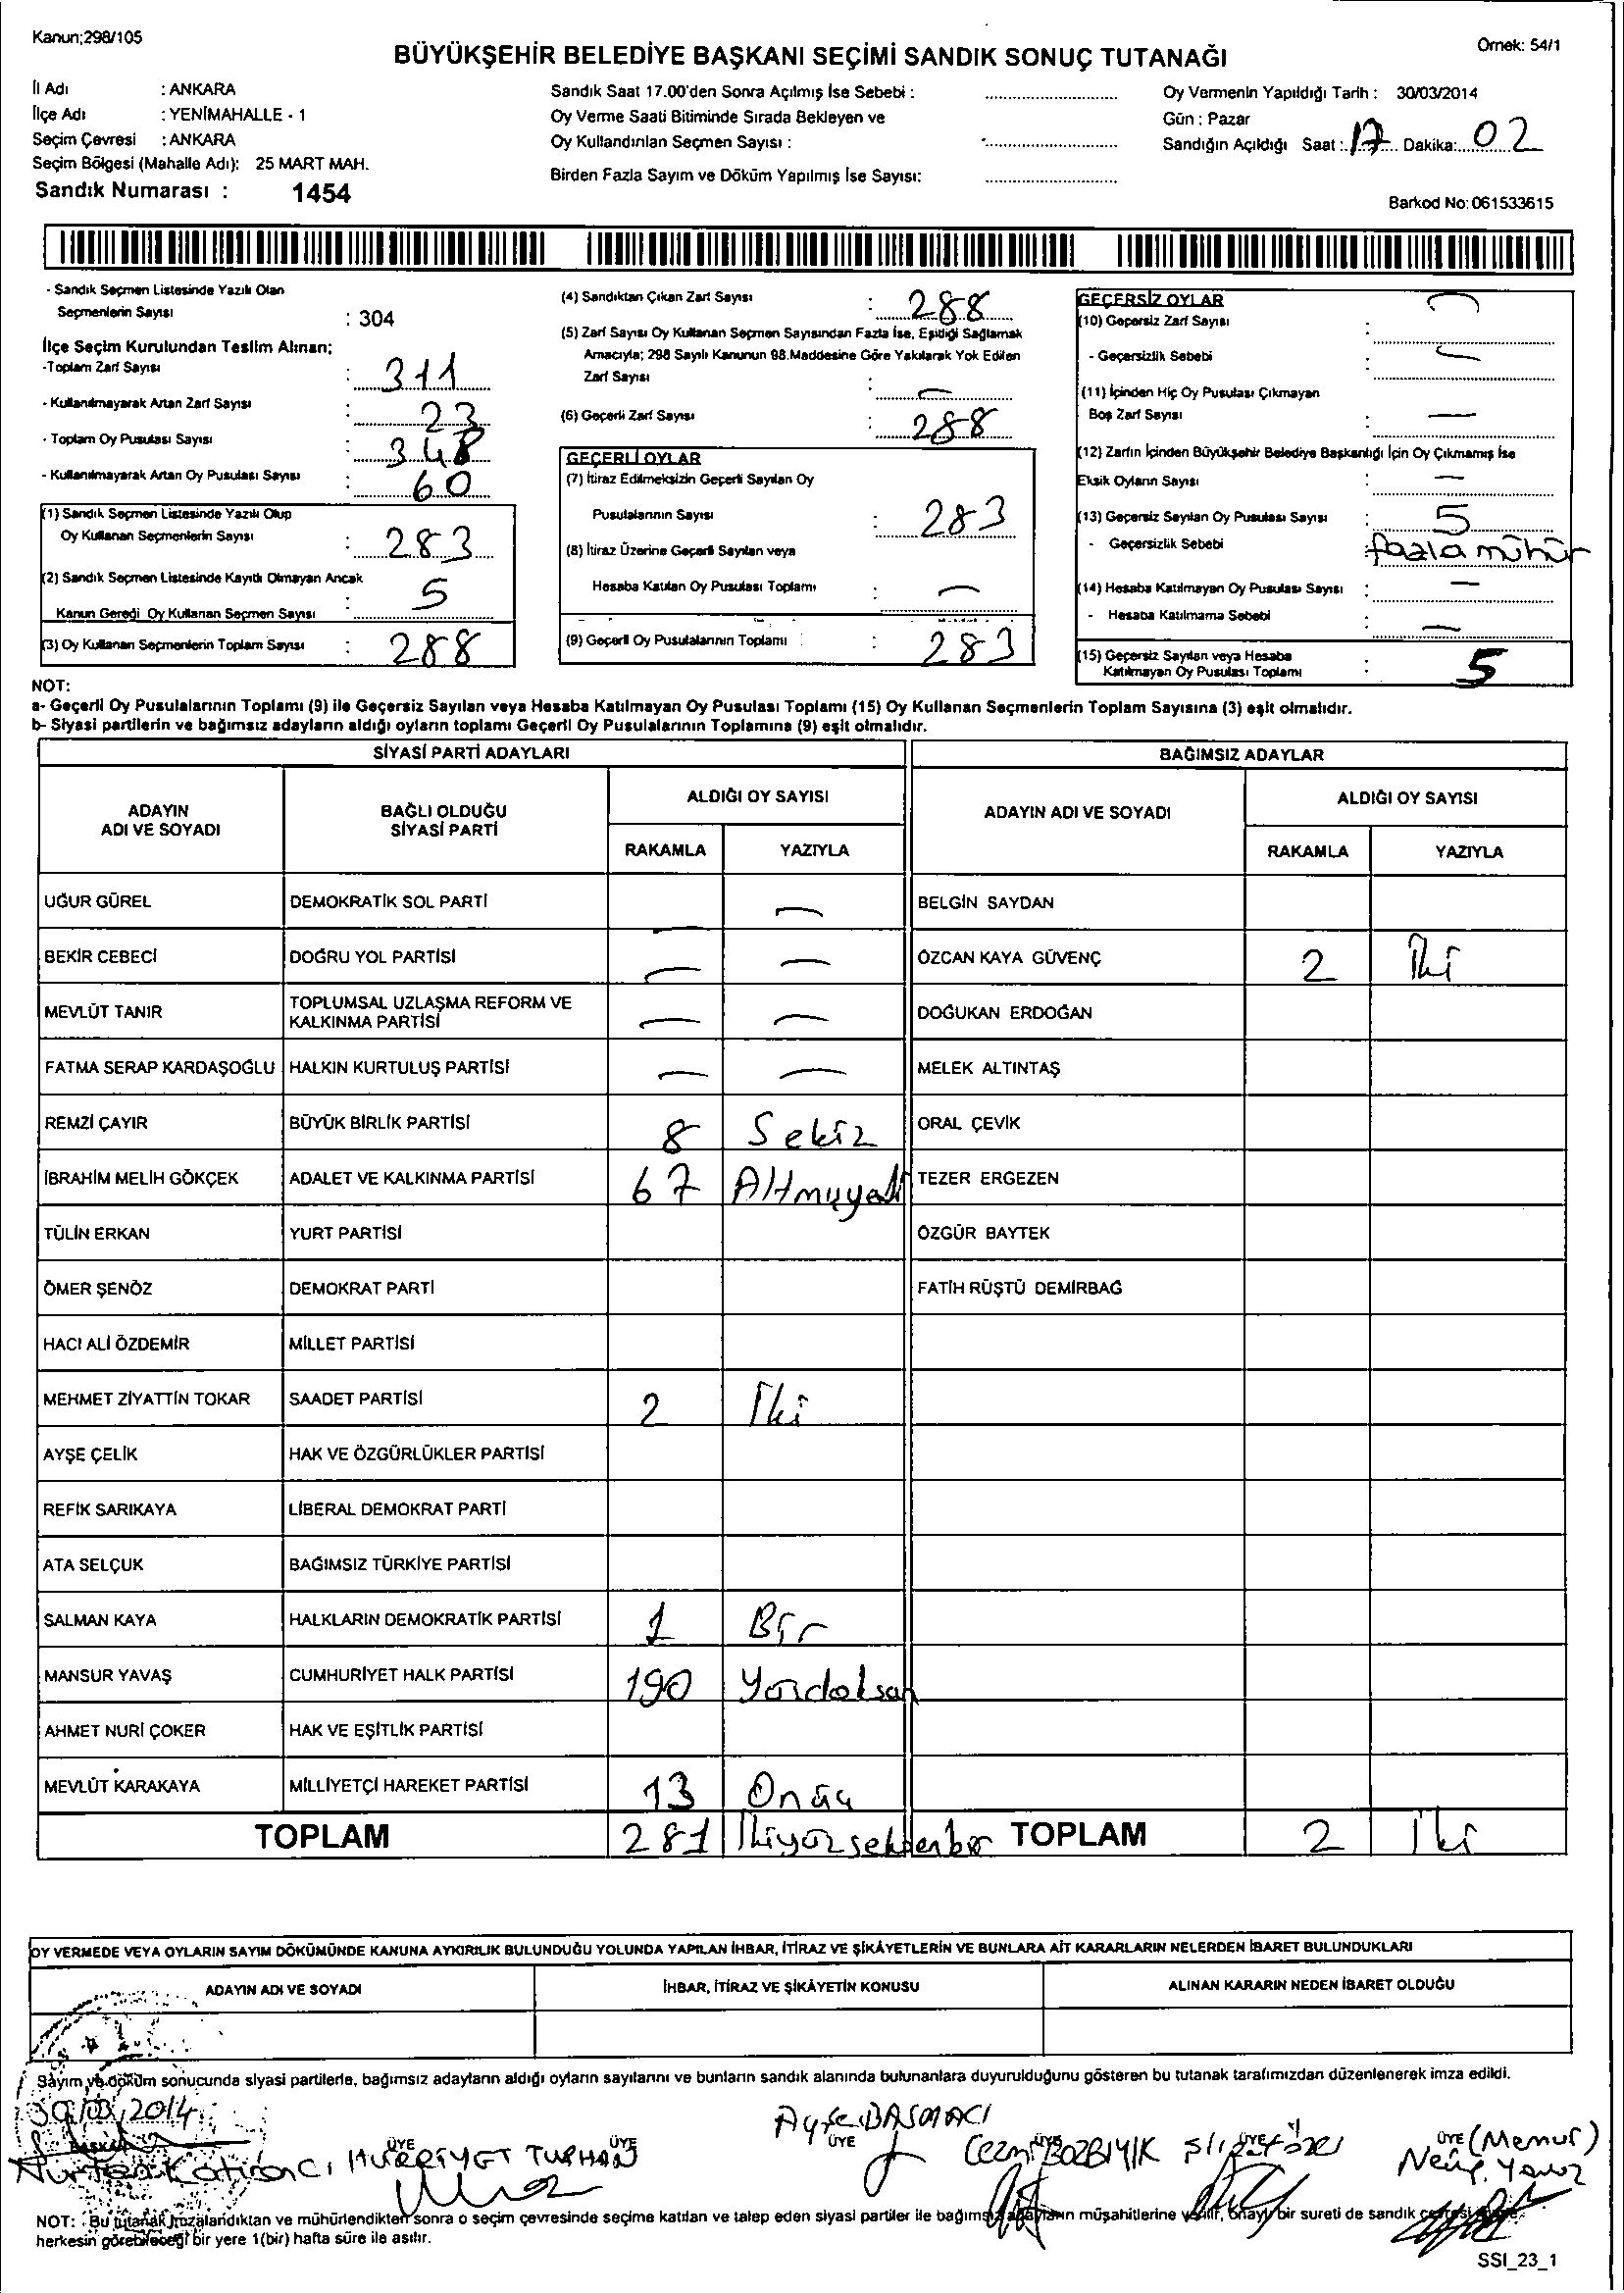 Kanun;298/105
Örnek: 54/1
BÜYÜKŞEHİR BELEDİYE BAŞKANI SEÇİMİ SANDIK SONUÇ TUTANAĞI
İl Adı : ANKARA
İlçe Adı : YENİMAHALLE - 1
Seçim Çevresi : ANKARA
Seçim Bölgesi (Mahalle Adı): 25 MART MAH.
Sandık Numarası : 1454
Sandık Saat 17.00'den Sonra Açılmış İse Sebebi :
Oy Verme Saati Bitiminde Sırada Bekleyen ve
Oy Kullandırılan Seçmen Sayısı :
Birden Fazla Sayım ve Döküm Yapılmış İse Sayısı:
Oy Vermenin Yapıldığı Tarih : 30/03/2014
Gün : Pazar
Sandığın Açıldığı Saat : 17 Dakika: 02
Barkod No: 061533615
- Sandık Seçmen Listesinde Yazılı Olan
Seçmenlerin Sayısı : 304
İlçe Seçim Kurulundan Teslim Alınan;
-Toplam Zarf Sayısı : 311
- Kullanılmayarak Artan Zarf Sayısı : 23
- Toplam Oy Pusulası Sayısı : 348
- Kullanılmayarak Artan Oy Pusulası Sayısı : 60
(1) Sandık Seçmen Listesinde Yazılı Olup
Oy Kullanan Seçmenlerin Sayısı : 283
(2) Sandık Seçmen Listesinde Kayıtlı Olmayan Ancak
Kanun Gereği Oy Kullanan Seçmen Sayısı : 5
(3) Oy Kullanan Seçmenlerin Toplam Sayısı : 288
(4) Sandıktan Çıkan Zarf Sayısı : 288
(5) Zarf Sayısı Oy Kullanan Seçmen Sayısından Fazla İse, Eşitliği Sağlamak
Amacıyla; 298 Sayılı Kanunun 98.Maddesine Göre Yakılarak Yok Edilen
Zarf Sayısı : —
(6) Geçerli Zarf Sayısı : 288
GEÇERLİ OYLAR
(7) İtiraz Edilmeksizin Geçerli Sayılan Oy
Pusulalarının Sayısı : 283
(8) İtiraz Üzerine Geçerli Sayılan veya
Hesaba Katılan Oy Pusulası Toplamı : —
(9) Geçerli Oy Pusulalarının Toplamı : 283
GEÇERSİZ OYLAR
(10) Geçersiz Zarf Sayısı : —
- Geçersizlik Sebebi : —
(11) İçinden Hiç Oy Pusulası Çıkmayan
Boş Zarf Sayısı : —
(12) Zarfın İçinden Büyükşehir Belediye Başkanlığı İçin Oy Çıkmamış İse
Eksik Oyların Sayısı : —
(13) Geçersiz Sayılan Oy Pusulası Sayısı : 5
- Geçersizlik Sebebi : fazla mühür
(14) Hesaba Katılmayan Oy Pusulası Sayısı : —
- Hesaba Katılmama Sebebi : —
(15) Geçersiz Sayılan veya Hesaba
Katılmayan Oy Pusulası Toplamı : 5
NOT:
a- Geçerli Oy Pusulalarının Toplamı (9) ile Geçersiz Sayılan veya Hesaba Katılmayan Oy Pusulası Toplamı (15) Oy Kullanan Seçmenlerin Toplam Sayısına (3) eşit olmalıdır.
b- Siyasi partilerin ve bağımsız adayların aldığı oyların toplamı Geçerli Oy Pusulalarının Toplamına (9) eşit olmalıdır.
SİYASİ PARTİ ADAYLARI
ADAYIN ADI VE SOYADI BAĞLI OLDUĞU SİYASİ PARTİ ALDIĞI OY SAYISI
RAKAMLA YAZIYLA
UĞUR GÜREL DEMOKRATİK SOL PARTİ — —
BEKİR CEBECİ DOĞRU YOL PARTİSİ — —
MEVLÜT TANIR TOPLUMSAL UZLAŞMA REFORM VE KALKINMA PARTİSİ — —
FATMA SERAP KARDAŞOĞLU HALKIN KURTULUŞ PARTİSİ — —
REMZİ ÇAYIR BÜYÜK BİRLİK PARTİSİ 8 Sekiz
İBRAHİM MELİH GÖKÇEK ADALET VE KALKINMA PARTİSİ 67 Altmışyedi
TÜLİN ERKAN YURT PARTİSİ
ÖMER ŞENÖZ DEMOKRAT PARTİ
HACI ALİ ÖZDEMİR MİLLET PARTİSİ
MEHMET ZİYATTİN TOKAR SAADET PARTİSİ 2 İki
AYŞE ÇELİK HAK VE ÖZGÜRLÜKLER PARTİSİ
REFİK SARIKAYA LİBERAL DEMOKRAT PARTİ
ATA SELÇUK BAĞIMSIZ TÜRKİYE PARTİSİ
SALMAN KAYA HALKLARIN DEMOKRATİK PARTİSİ 1 Bir
MANSUR YAVAŞ CUMHURİYET HALK PARTİSİ 190 Yüzdoksan
AHMET NURİ ÇOKER HAK VE EŞİTLİK PARTİSİ
MEVLÜT KARAKAYA MİLLİYETÇİ HAREKET PARTİSİ 13 Onüç
TOPLAM 281 İkiyüzseksenbir
BAĞIMSIZ ADAYLAR
ADAYIN ADI VE SOYADI ALDIĞI OY SAYISI
RAKAMLA YAZIYLA
BELGİN SAYDAN
ÖZCAN KAYA GÜVENÇ 2 İki
DOĞUKAN ERDOĞAN
MELEK ALTINTAŞ
ORAL ÇEVİK
TEZER ERGEZEN
ÖZGÜR BAYTEK
FATİH RÜŞTÜ DEMİRBAĞ
TOPLAM 2 İki
OY VERMEDE VEYA OYLARIN SAYIM DÖKÜMÜNDE KANUNA AYKIRILIK BULUNDUĞU YOLUNDA YAPILAN İHBAR, İTİRAZ VE ŞİKÂYETLERİN VE BUNLARA AİT KARARLARIN NELERDEN İBARET BULUNDUKLARI
ADAYIN ADI VE SOYADI İHBAR, İTİRAZ VE ŞİKÂYETİN KONUSU ALINAN KARARIN NEDEN İBARET OLDUĞU
Sayım ve döküm sonucunda siyasi partilerle, bağımsız adayların aldığı oyların sayılarını ve bunların sandık alanında bulunanlara duyurulduğunu gösteren bu tutanak tarafımızdan düzenlenerek imza edildi.
30/03/2014
BAŞKAN ÜYE ÜYE ÜYE ÜYE ÜYE ÜYE (Memur)
HÜRRİYET TURHAN Ayşe BASMACI Cezmi BOZBIYIK
NOT: Bu tutanak imzalandıktan ve mühürlendikten sonra o seçim çevresinde seçime katılan ve talep eden siyasi partiler ile bağımsız adayların müşahitlerine verilir, onaylı bir sureti de sandık çevresinde
herkesin görebileceği bir yere 1(bir) hafta süre ile asılır.
SSI_23_1